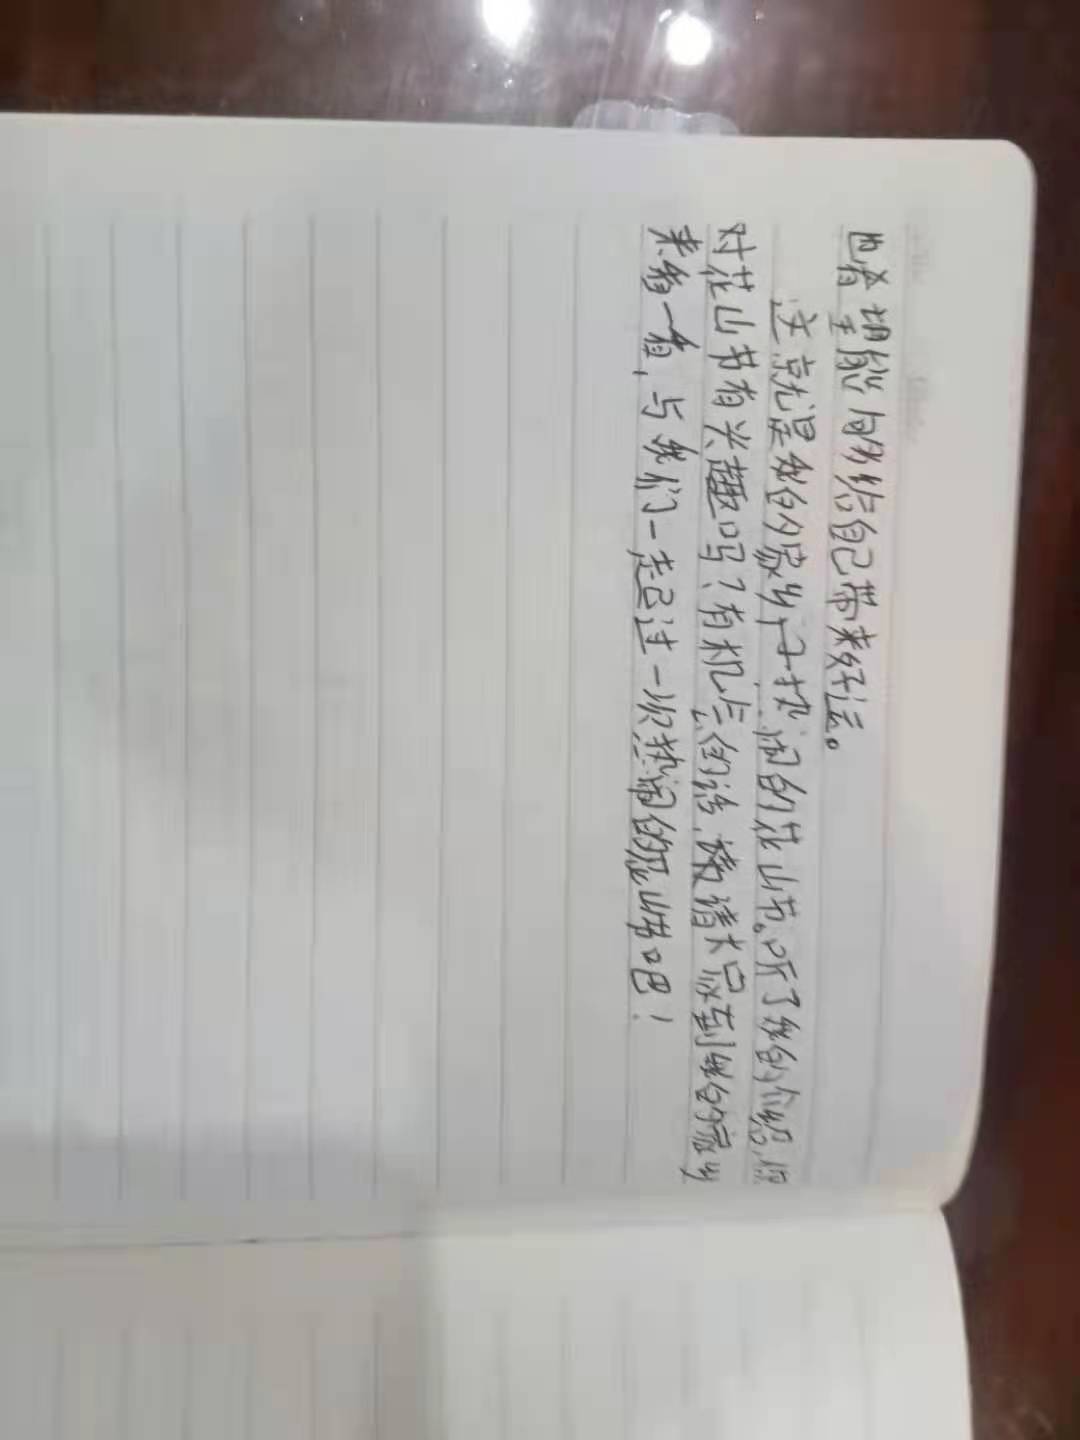 也希望能够给自己带来好运。
这就是我的家乡热闹的花山节。听了我的介绍,你
对花山节有兴趣吗?有机会的话,邀请大家到我的家乡
来看一看,与我们一起过一次热闹的花山节吧!